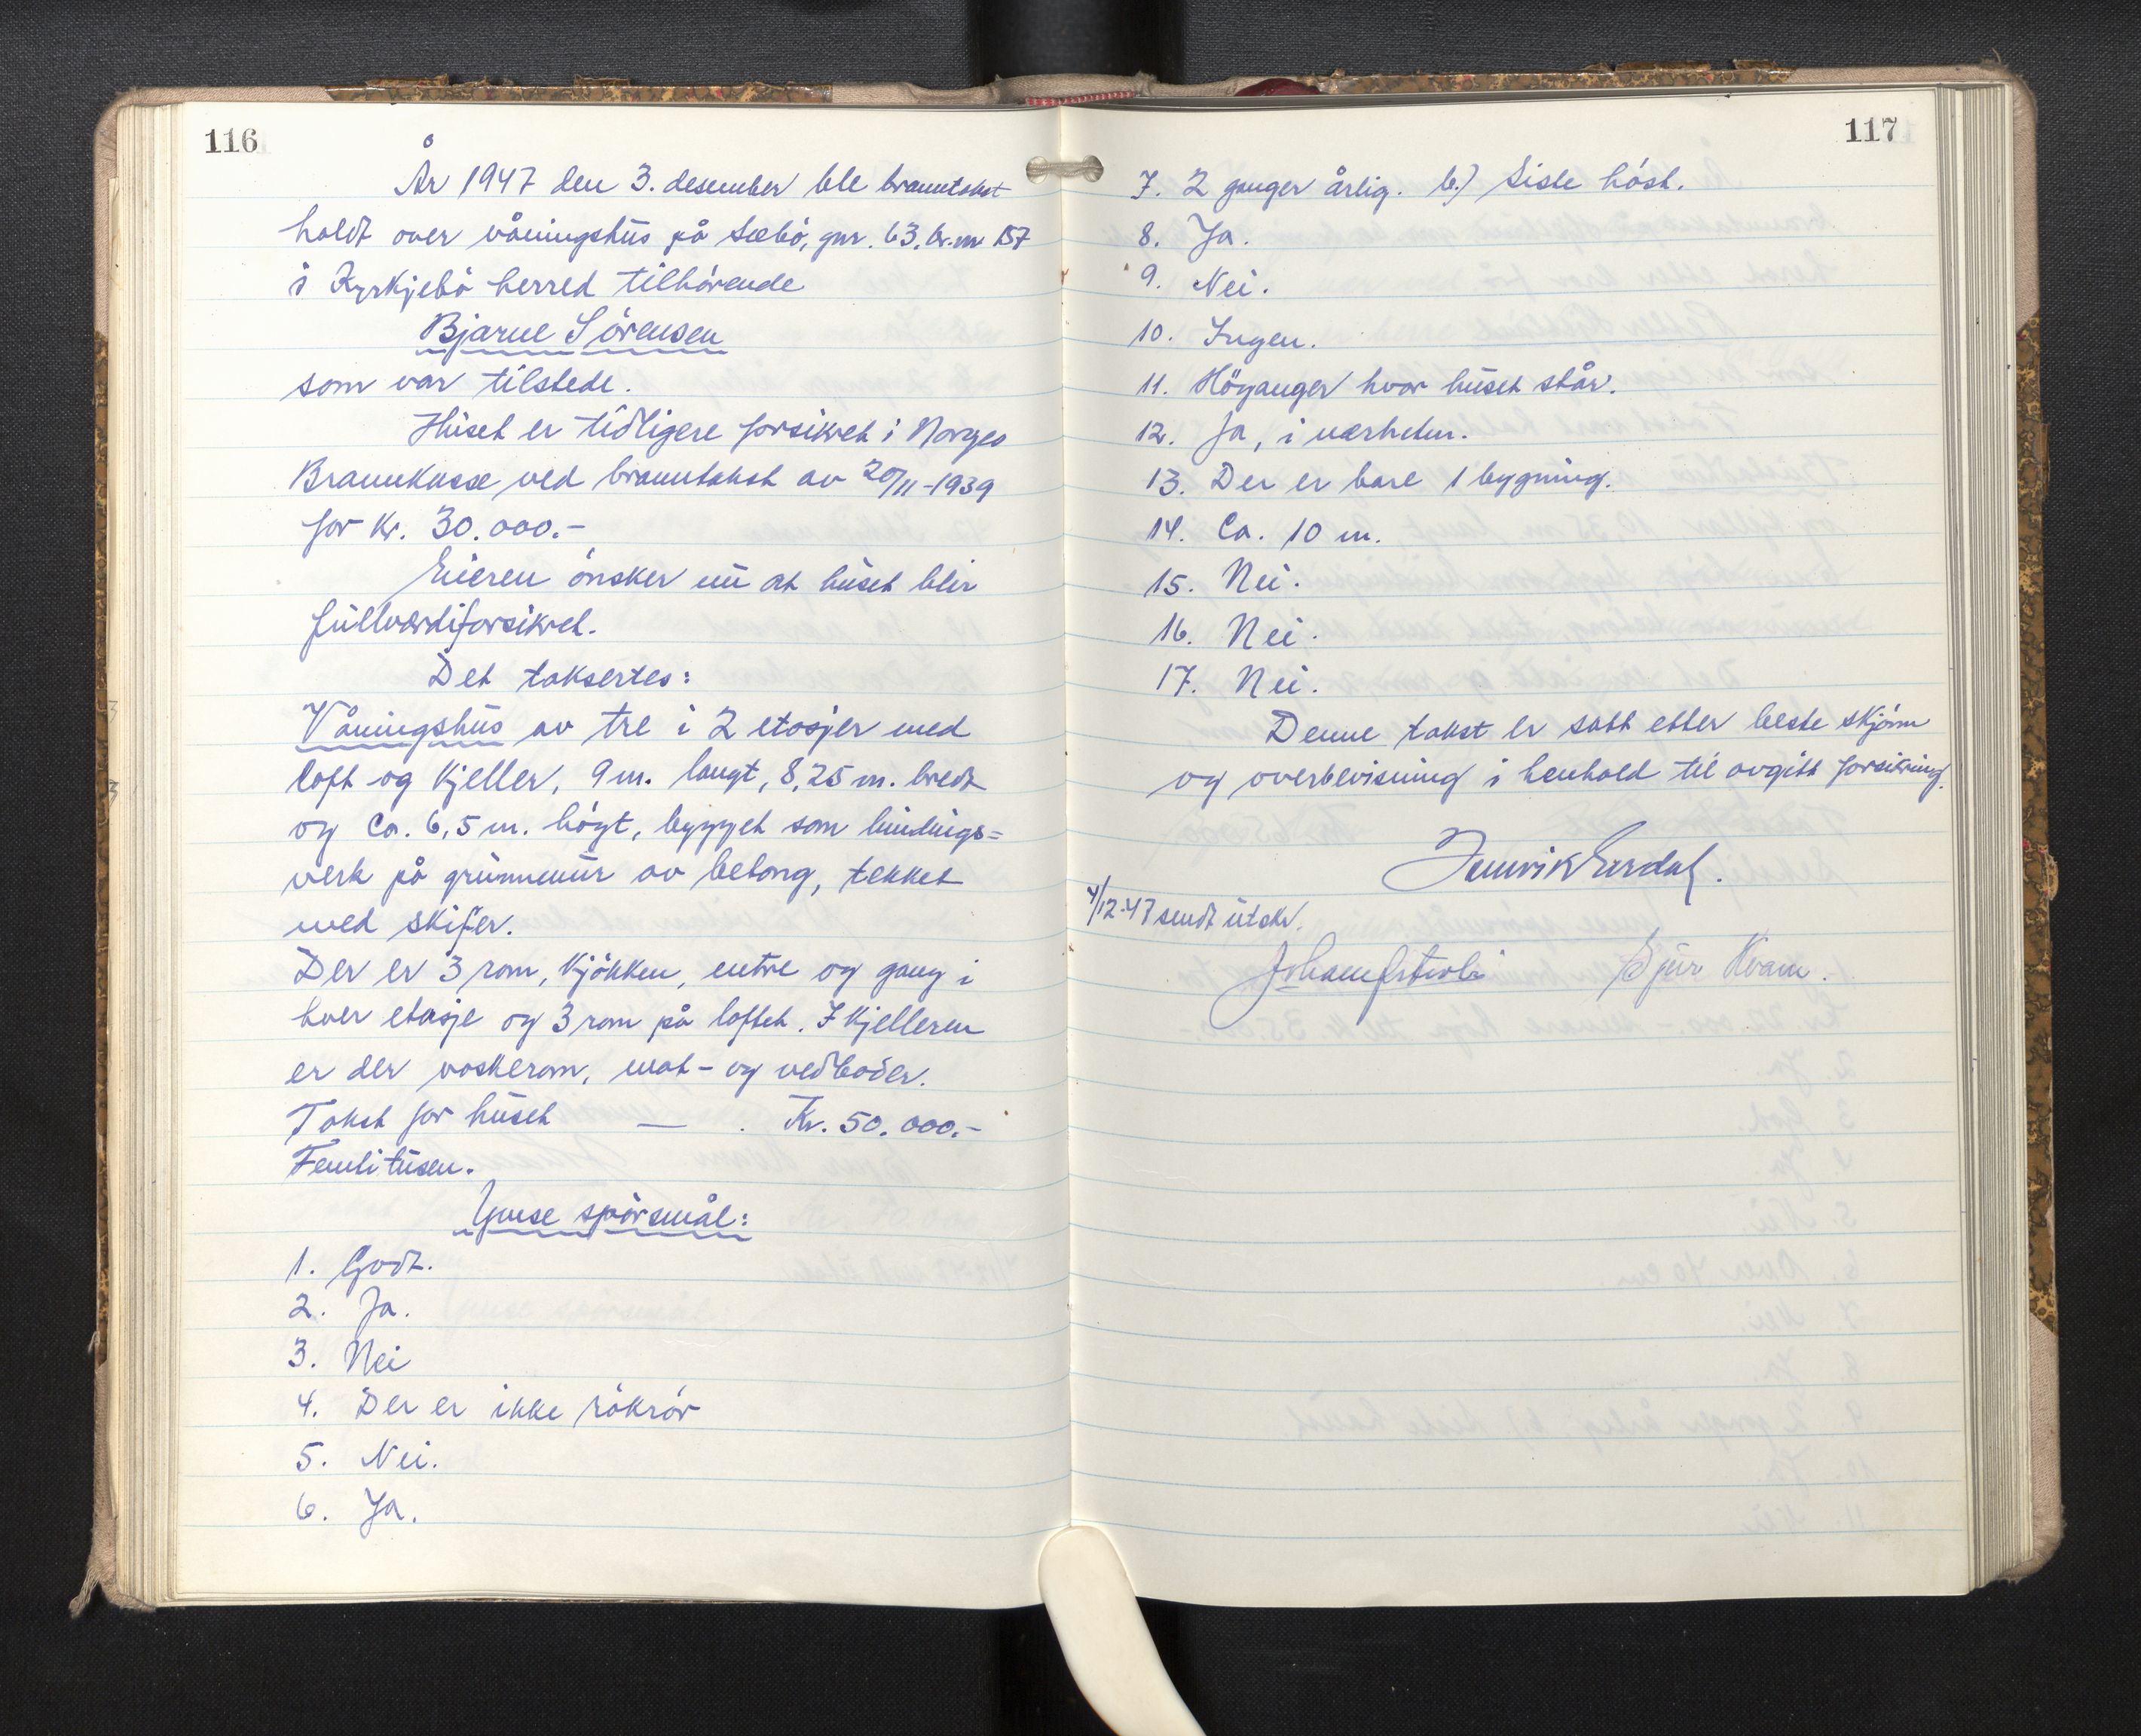 116
År 1947 den 3. desember ble branntakst
holdt over våningshus på Sæbö, gnr. 63, br.nr 157
i Kyrkjebö herred tilhörende
Bjarne Sörensen
som var tilstede.
Huset er tidligere forsikret i Norges
Brannkasse ved branntakst av 20/11-1939
for kr. 30.000.-
Eieren önsker nu at huset blir
fullverdiforsikret.
Det taksertes:
Våningshus av tre i 2 etasjer med
loft og kjeller, 9 m. langt, 8,25 m. bredt
og ca. 6,5 m. höyt, bygget som bindings=
verk på grunnmur av betong, tekket
med skifer.
Der er 3 rom, kjökken, entre og gang i
hver etasje og 3 rom på loftet. I kjelleren
er der vaskerom, mat- og vedboder.
Takst for huset — . Kr. 50.000.-
Femti tusen.
Ymse spörsmål:
1. Godt.
2. Ja.
3. Nei
4. Der er ikke rökrör
5. Nei.
6. Ja.
117
7. 2 ganger årlig. b.) Siste höst.
8. Ja.
9. Nei.
10. Ingen.
11. Höyanger hvor huset står.
12. Ja, i nærheten.
13. Der er bare 1 bygning.
14. Ca. 10 m.
15. Nei.
16. Nei.
17. Nei.
Denne takst er satt etter beste skjönn
og overbevisning i henhold til avgitt forsikring.
4/12-47 sendt utskr.
Sjur Kvam.